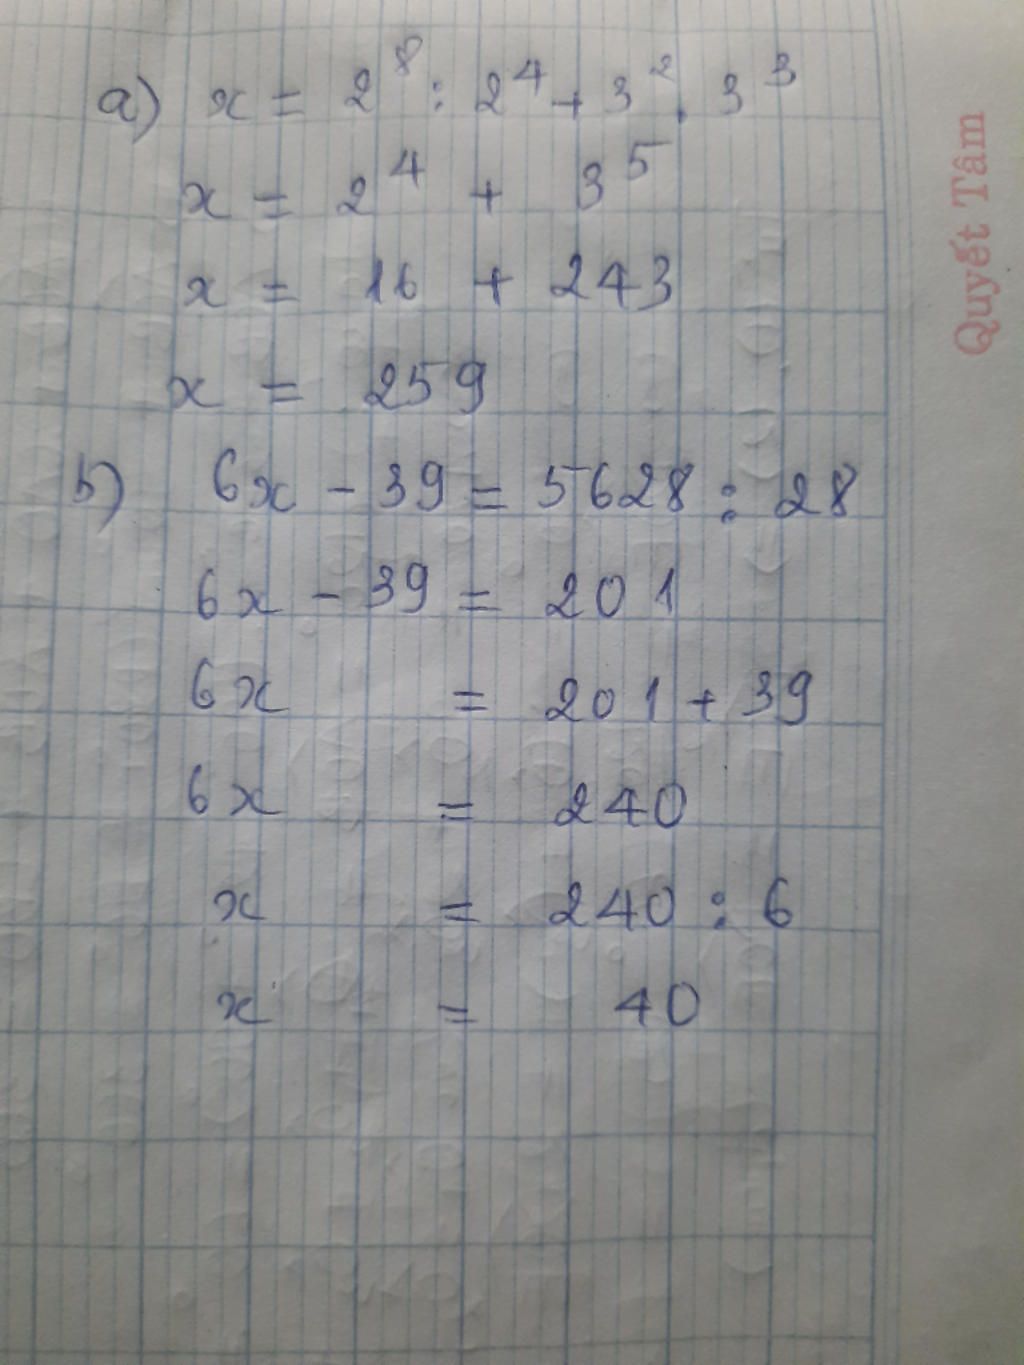 a) x = 2⁸ : 2⁴ + 3² . 3³
x = 2⁴ + 3⁵
x = 16 + 243
x = 259
b) 6x - 39 = 5628 : 28
6x - 39 = 201
6x = 201 + 39
6x = 240
x = 240 : 6
x = 40
Quyết Tâm